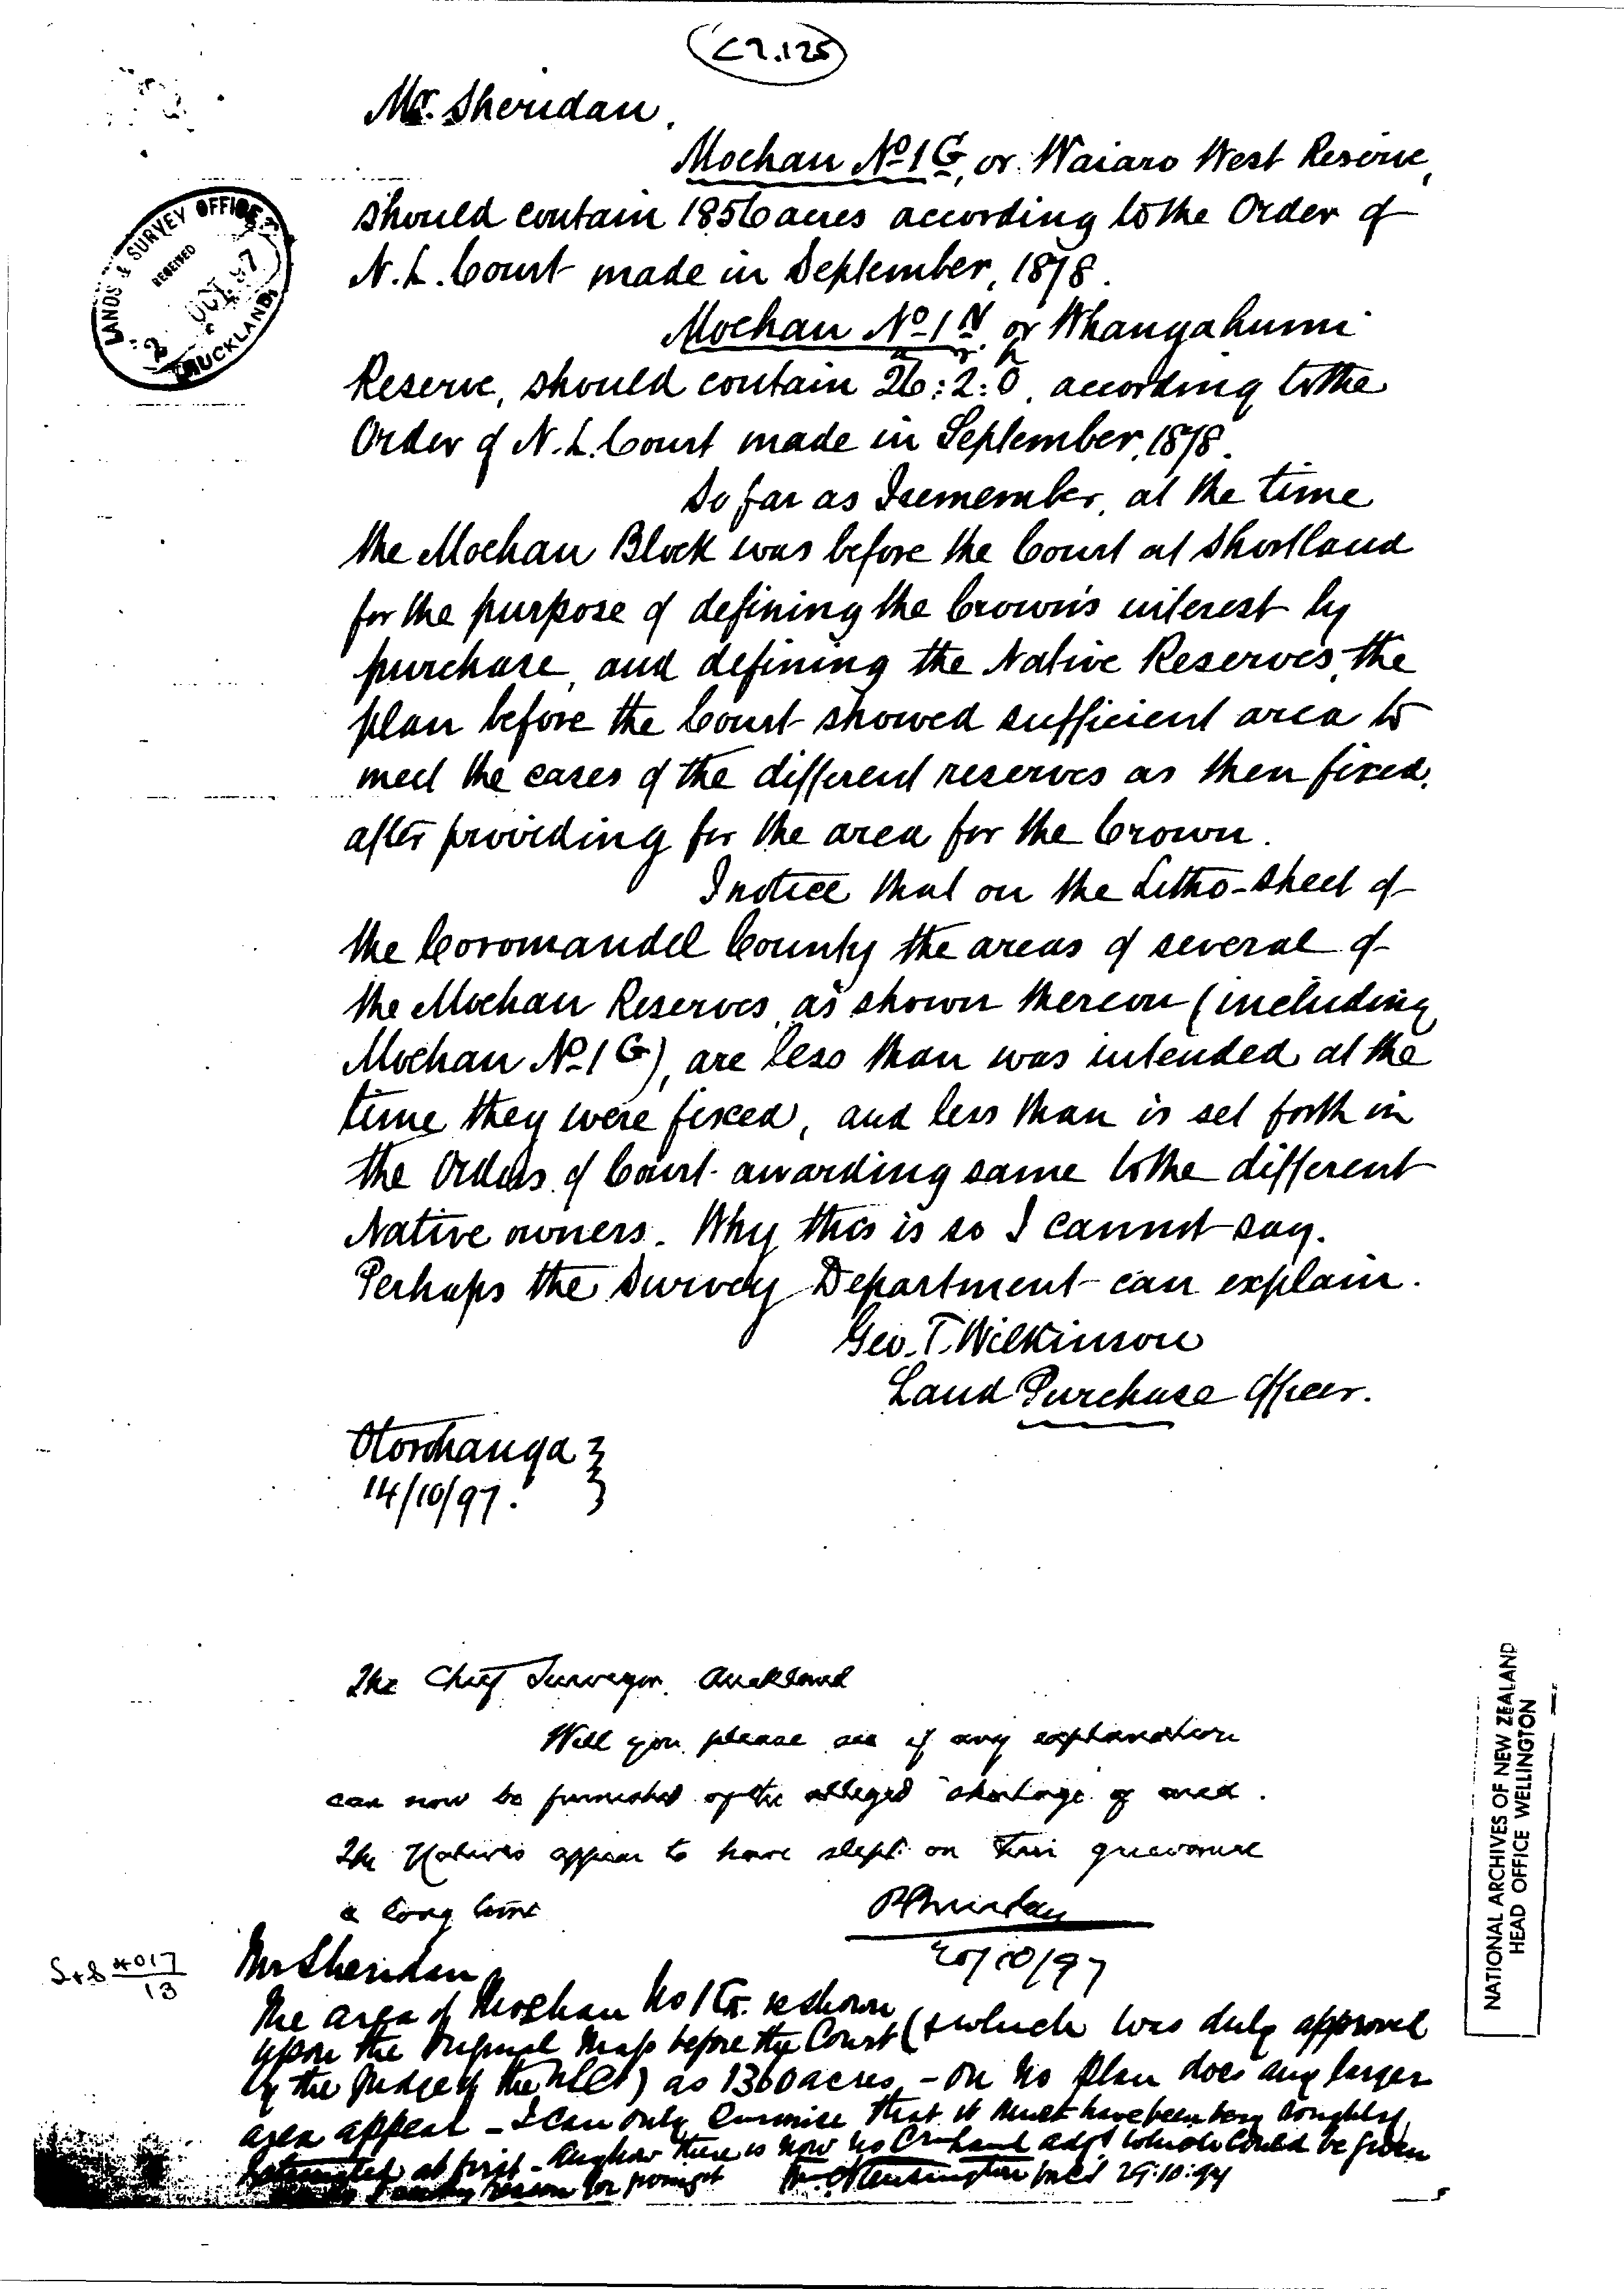 C2.125
Mr. Sheridan,
Moehau No 1 G, or Waiaro West Reserve,
should contain 1856 acres according to the Order of
N. L. Court made in September, 1878.
Moehau No 1 N or Whangahumi
a r p
Reserve, should contain 26:2:0, according to the
Order of N. L. Court made in September, 1878.
So far as I remember, at the time
the Moehau Block was before the Court at Shortland
for the purpose of defining the Crown's interest by
purchase, and defining the Native Reserves, the
plan before the Court showed sufficient area to
meet the cases of the different reserves as then fixed,
after providing for the area for the Crown.
I notice that on the Litho-sheet of
the Coromandel County the areas of several of
the Moehau Reserves, as shown thereon (including
Moehau No 1 G), are less than was intended at the
time they were fixed, and less than is set forth in
the Orders of Court awarding same to the different
Native owners. Why this is so I cannot say.
Perhaps the Survey Department can explain.
Geo. T. Wilkinson
Land Purchase Officer.
Otorohanga
14/10/97.
LANDS & SURVEY OFFICE
RECEIVED
2 OCT 97
AUCKLAND
The Chief Surveyor, Auckland
Will you please see if any explanation
can now be furnished of the alleged shortage of area.
The Natives appear to have slept on their grievance
a long time
P Sheridan
20/10/97
S+8 4017
13
Mr Sheridan,
The area of Moehau No 1 G. is shown
upon the Original Map before the Court (& which was duly approved
by the Judge of the NLCt) as 1360 acres - On no plan does any larger
area appear - I can only surmise that it must have been very roughly
estimated at first - Anyhow there is now no Cr. land adjt which could be given
reason for 29:10:97
NATIONAL ARCHIVES OF NEW ZEALAND
HEAD OFFICE WELLINGTON